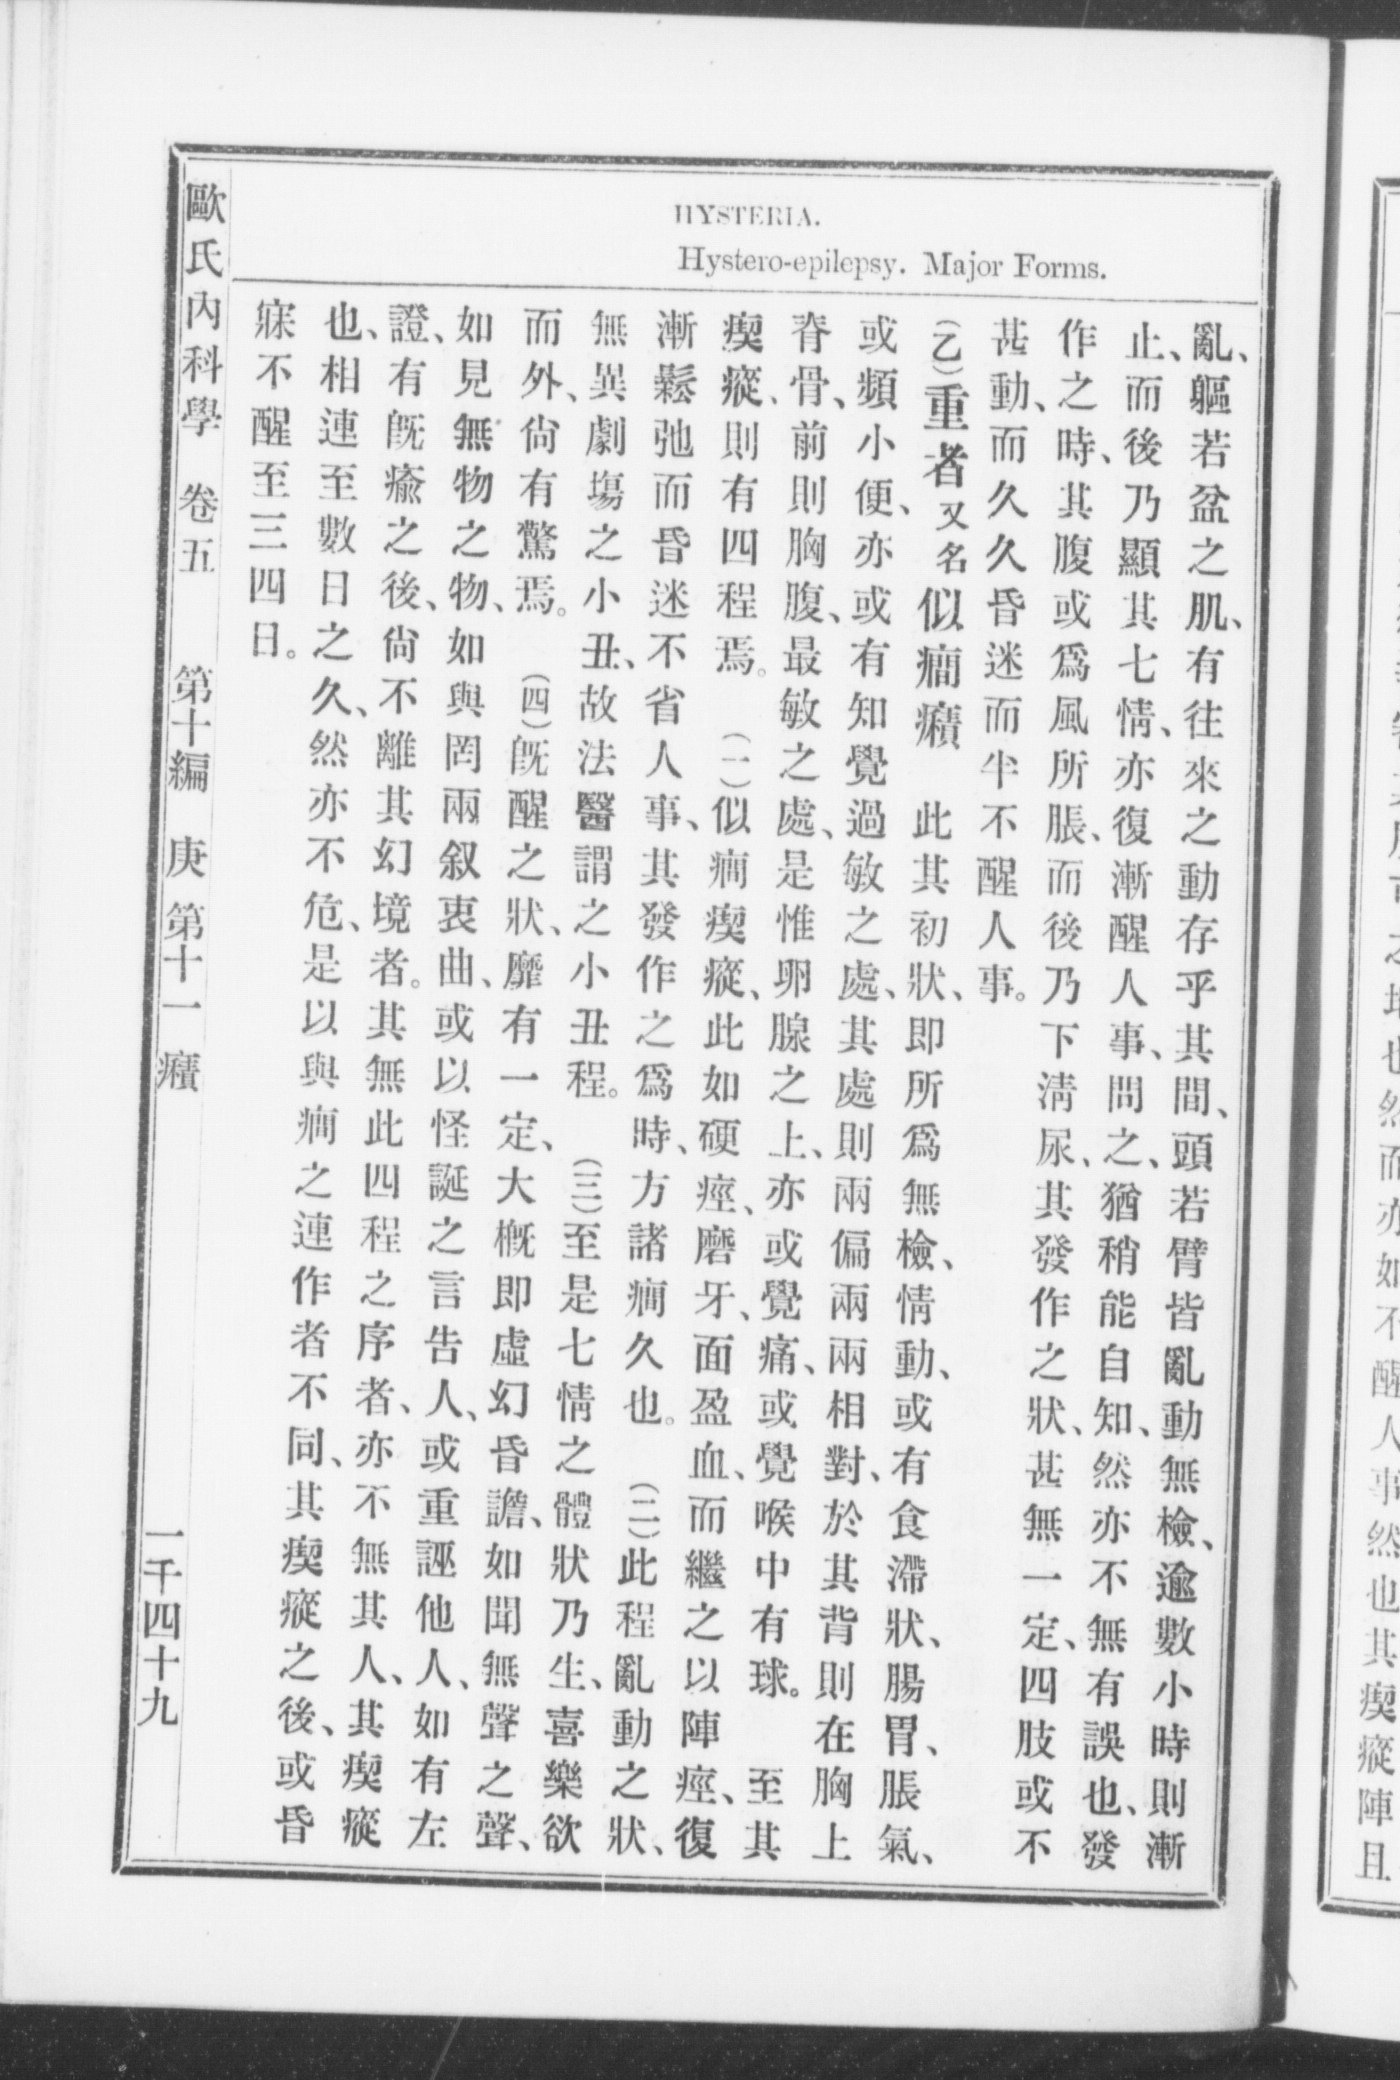 HYSTERIA.
Hystero-epilepsy. Major Forms.
亂、軀若盆之肌、有往來之動存乎其間、頭若臂皆亂動無檢、逾數小時則漸
止、而後乃顯其七情、亦復漸醒人事、問之、猶稍能自知、然亦不無有誤也、發
作之時、其腹或爲風所脹、而後乃下淸尿、其發作之狀、甚無一定、四肢或不
甚動、而久久昏迷而半不醒人事。
(乙)重者又名似癎癪　此其初狀、卽所爲無檢、情動、或有食滯狀、腸胃、脹氣、
或頻小便、亦或有知覺過敏之處、其處則兩偏兩兩相對、於其背則在胸上
脊骨、前則胸腹、最敏之處、是惟卵腺之上、亦或覺痛、或覺喉中有球。　至其
瘈瘲、則有四程焉。　(一)似癎瘈瘲、此如硬痙、磨牙、面盈血、而繼之以陣痙、復
漸鬆弛而昏迷不省人事、其發作之爲時、方諸癎久也。　(二)此程亂動之狀、
無異劇塲之小丑、故法醫謂之小丑程。　(三)至是七情之體狀乃生、喜樂欲
而外、尙有驚焉。　(四)旣醒之狀、靡有一定、大槪卽虛幻昏譫、如聞無聲之聲、
如見無物之物、如與罔兩叙衷曲、或以怪誕之言告人、或重誣他人、如有左
證、有旣瘉之後、尙不離其幻境者。其無此四程之序者、亦不無其人、其瘈瘲
也、相連至數日之久、然亦不危、是以與癎之連作者不同、其瘈瘲之後、或昏
寐不醒至三四日。
歐氏內科學　卷五　第十編　庚　第十一　癪　一千四十九